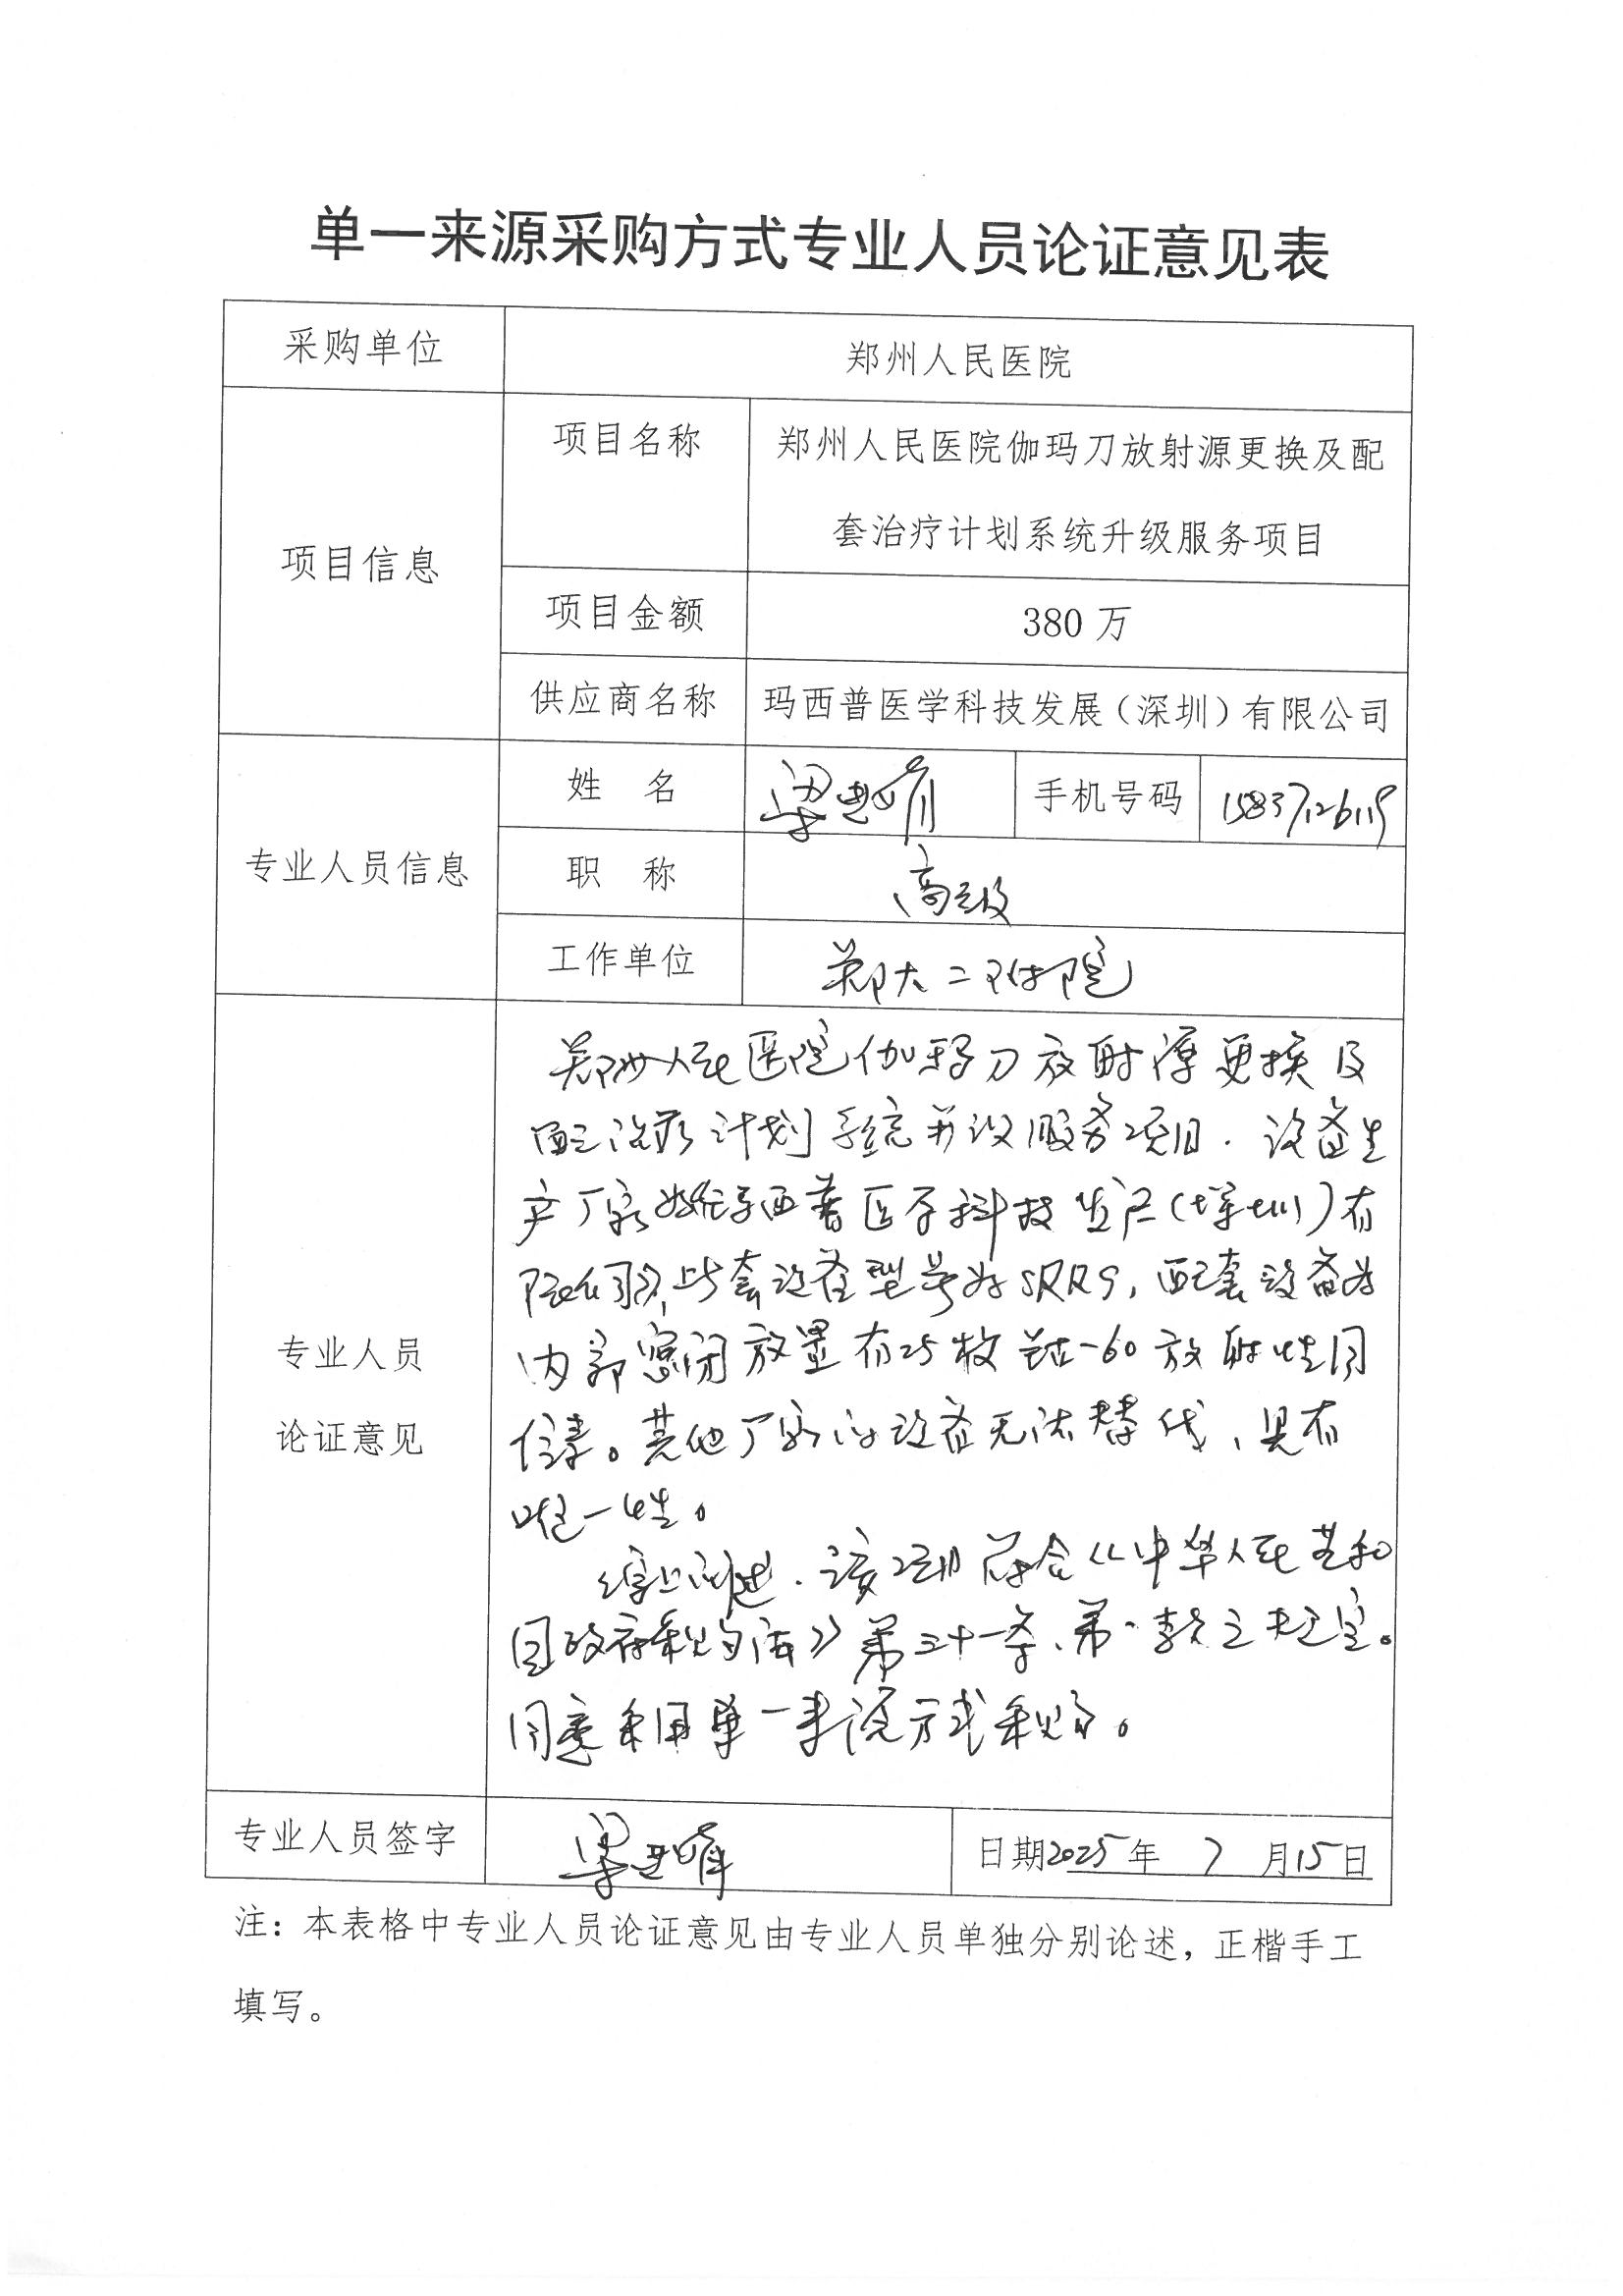 单一来源采购方式专业人员论证意见表
采购单位
郑州人民医院
项目信息
项目名称
郑州人民医院伽玛刀放射源更换及配
套治疗计划系统升级服务项目
项目金额
380 万
供应商名称
玛西普医学科技发展（深圳）有限公司
专业人员信息
姓 名
手机号码
15837126119
职 称
高级
工作单位
郑大二附院
专业人员
论证意见
郑州人民医院伽玛刀放射源更换及
配套治疗计划系统升级服务项目.设备生
产厂家为玛西普医学科技发展(深圳)有
限公司,此套设备型号为SRRS,配套设备为
内部密闭放置有25枚钴-60放射性同
位素。其他厂家的设备无法替代、具有
唯一性。
综上所述.该项目符合《中华人民共和
国政府采购法》第三十一条、第一款之规定。
同意采用单一来源方式采购。
专业人员签字
日期2025年 7 月15日
注：本表格中专业人员论证意见由专业人员单独分别论述，正楷手工
填写。